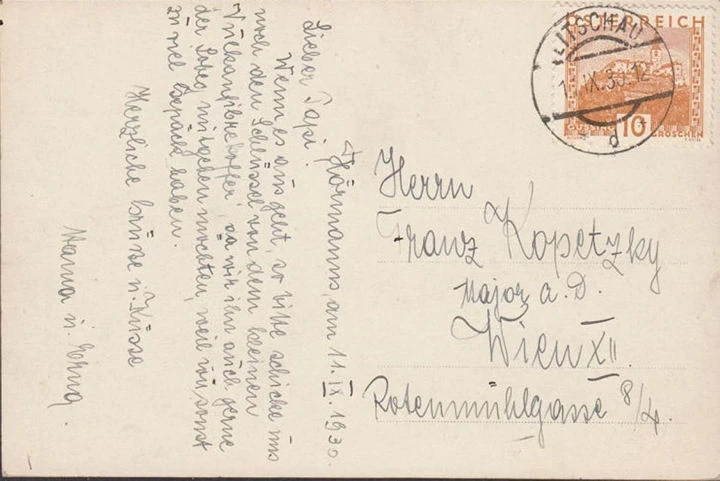 Hörmanns am 11. IX. 1930.
Lieber Papi!
Wenn es aus geht, so bitte schicke uns
noch den Schlüssel von dem kleinen
Vulkanfiberkoffer, da wir ihn auch gerne
mitgehen möchten, weil wir sonst
zu viel Gepäck haben.
Herzliche Grüsse u. Küsse
u. Erna.
ÖSTERREICH
LITSCHAU
IX. 30. 12
d
10 GROSCHEN
GÜSSING
Herrn
Franz Kopetzky
Major a. D.
Wien XII.
Rotenmühlgasse 8/4.